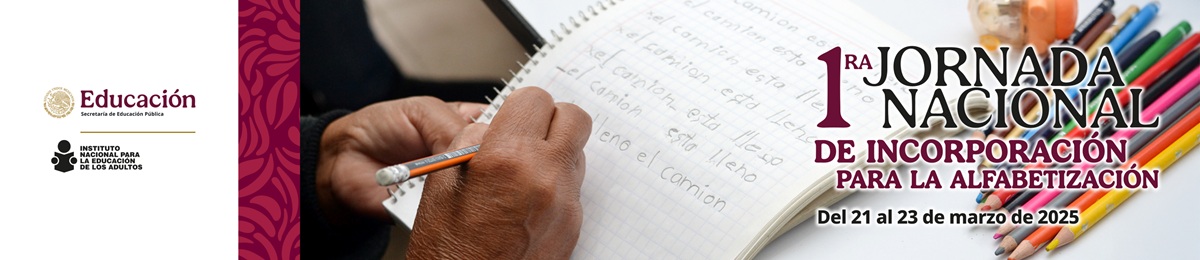 Educación
Secretaría de Educación Pública
INSTITUTO
NACIONAL PARA
LA EDUCACIÓN
DE LOS ADULTOS
camion
el camion esta
el camion esta lleno
el camion esta lleno
el camion esta lleno
lleno el camion
1RA JORNADA
NACIONAL
DE INCORPORACIÓN
PARA LA ALFABETIZACIÓN
Del 21 al 23 de marzo de 2025